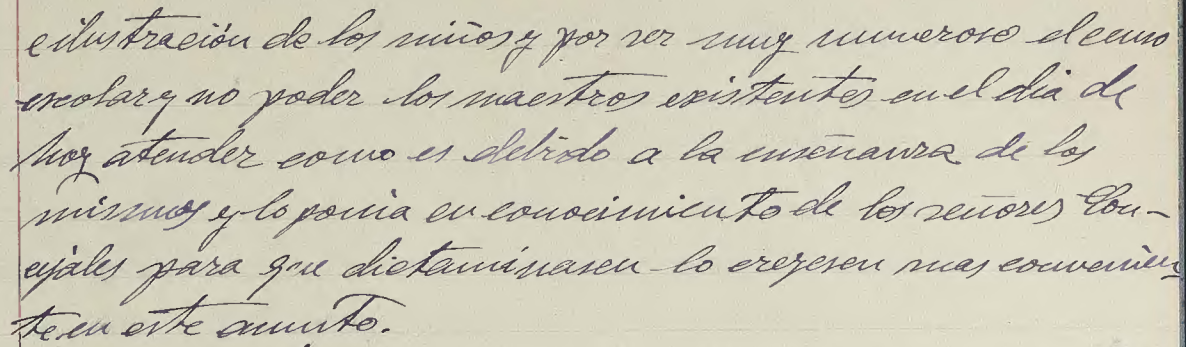 e ilustración de los niños y por ser muy numeroso el censo
escolar y no poder los maestros existentes en el dia de
hoy atender como es debido a la enseñanza de los
mismos y lo ponia en conocimiento de los señores Con-
cejales para que dictaminasen lo creyesen mas convenien
te en este asunto.